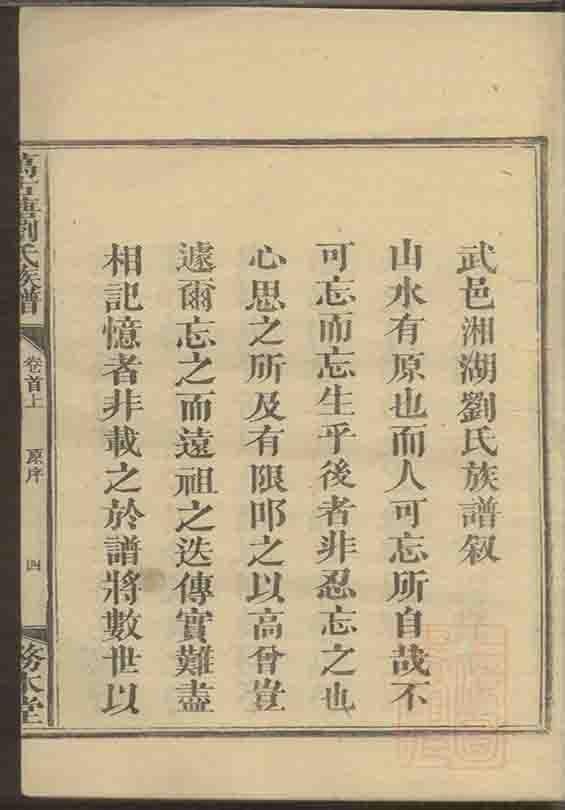 武邑湘湖劉氏族譜叙
山水有原也而人可忘所自哉不
可忘而忘生乎後者非忍忘之也
心思之所及有限叩之以高曾豈
遽爾忘之而遠祖之迭傳實難盡
相記憶者非載之於譜將數世以
劉氏族譜
卷首上
原序
四
務本堂